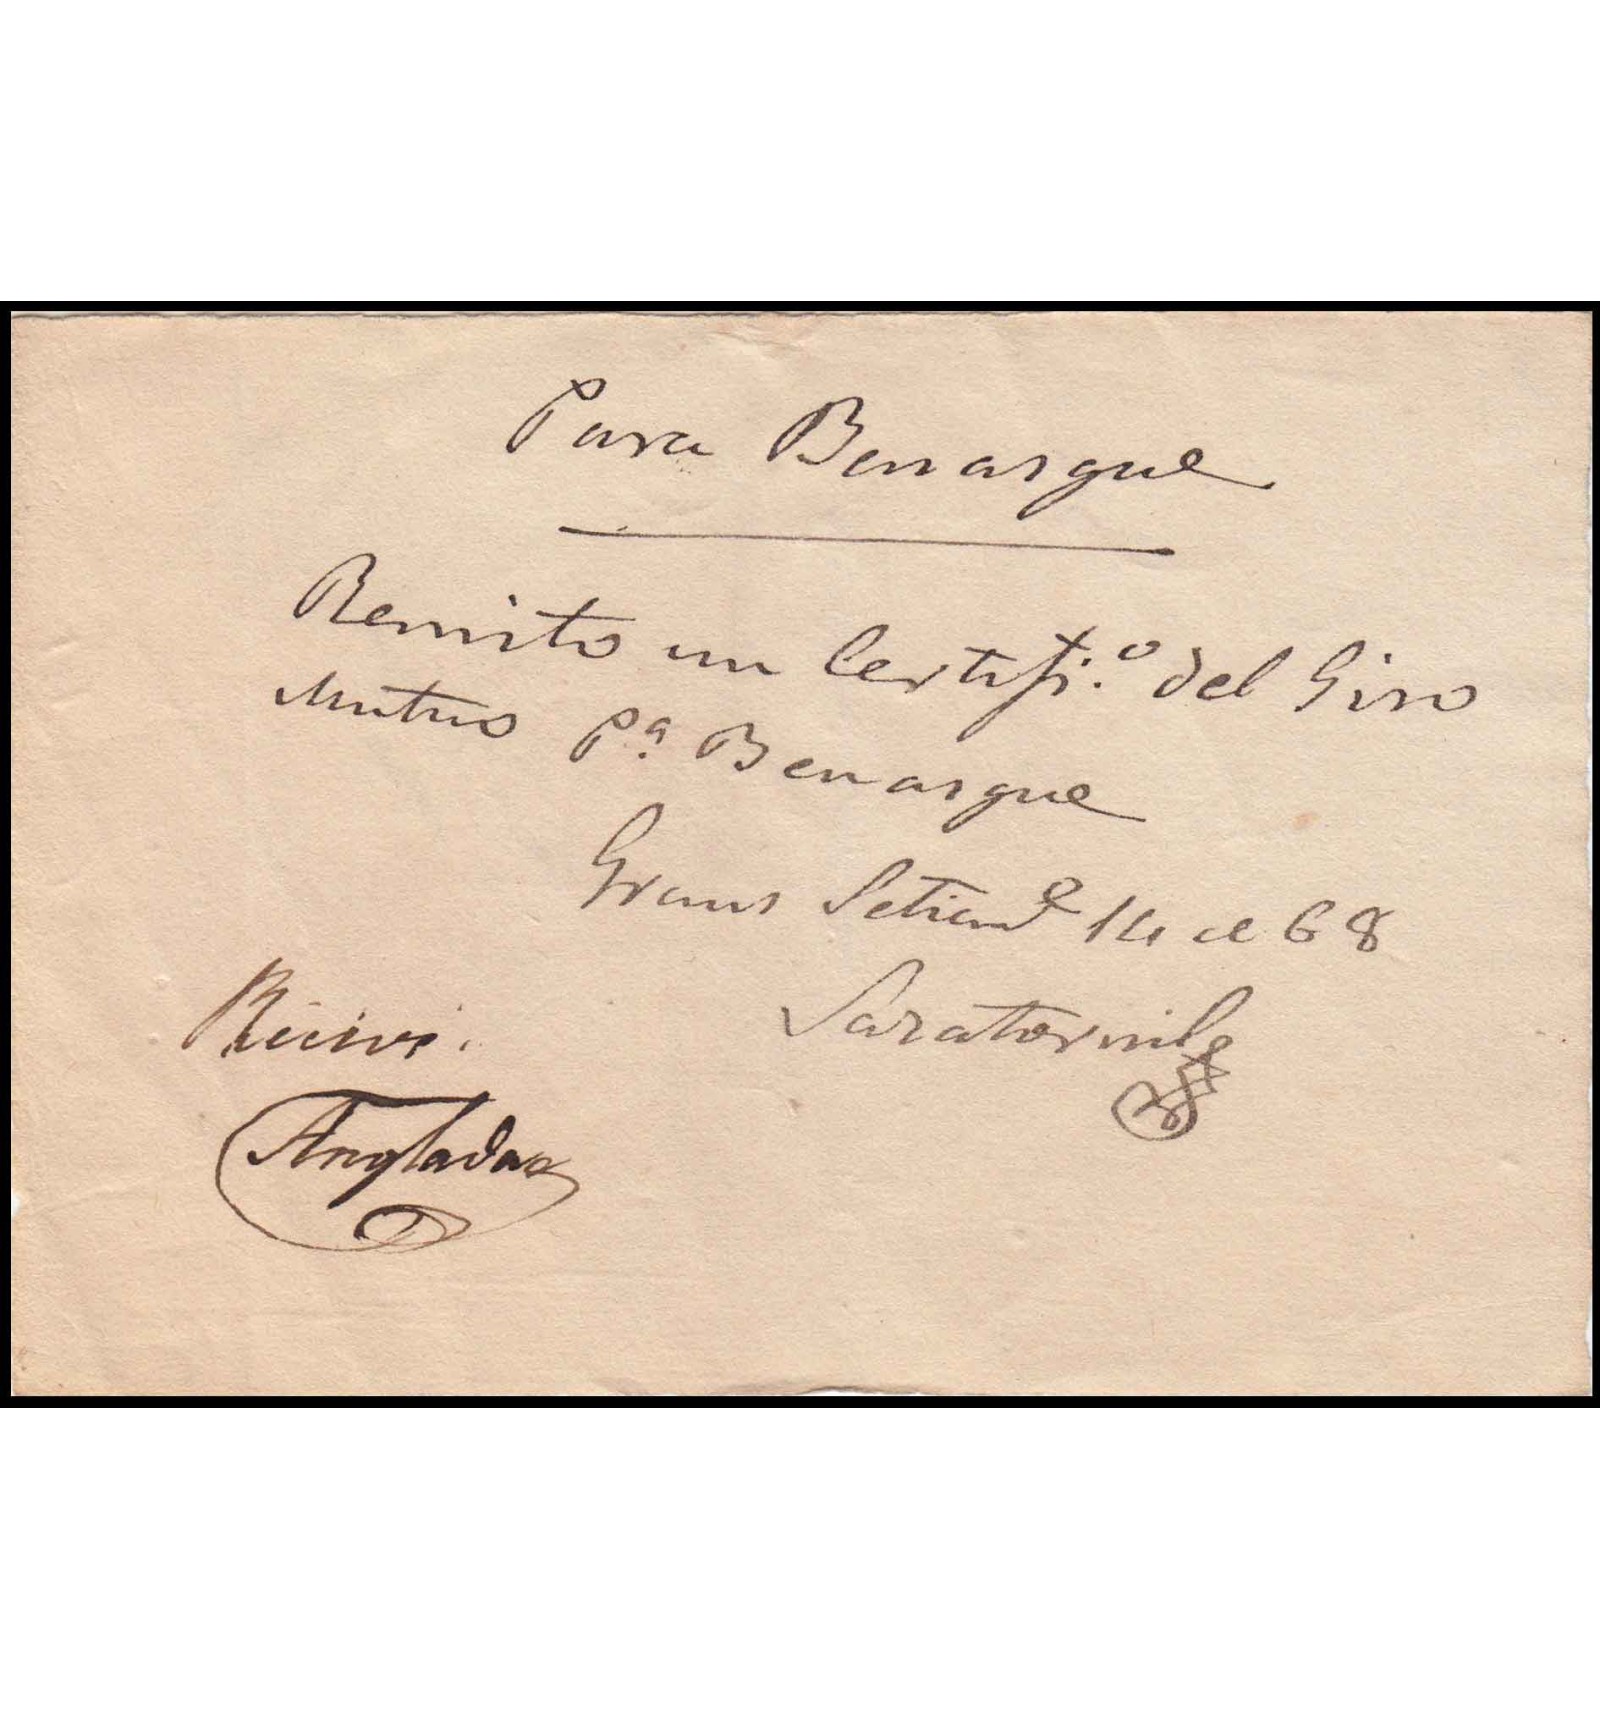 Para Benasque
Remito un Certifi.º del Giro
Mutuo Pª Benasque
Graus Setiemᵉ 14 de 68
Recivi.
Anglada